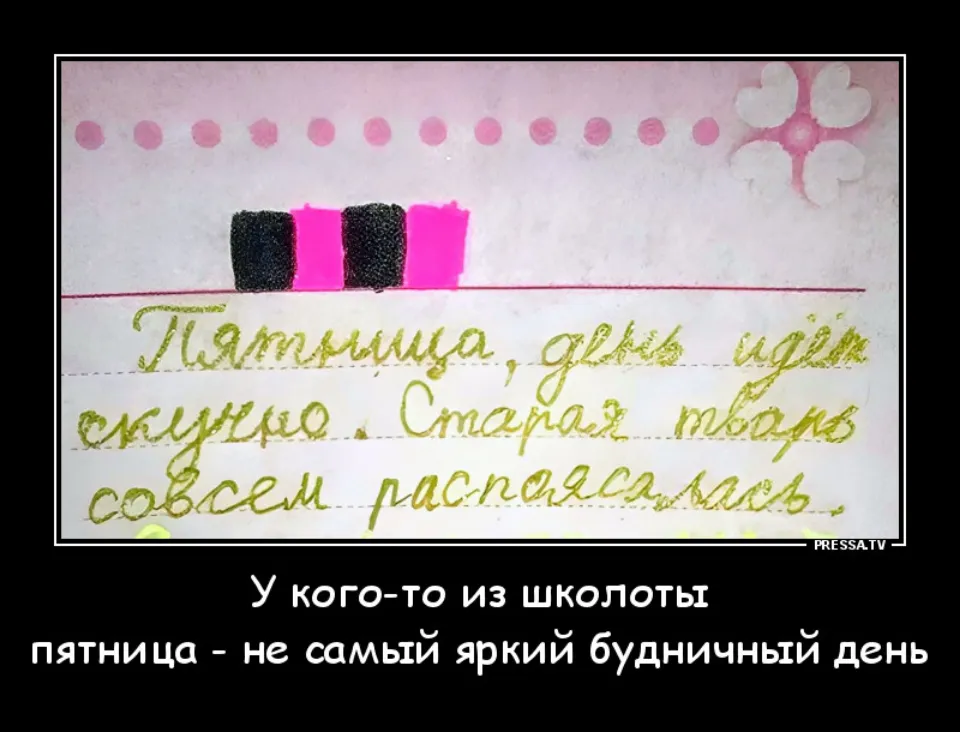 Пятница, день идёт
скучно. Старая тварь
совсем распоясалась.
PRESSA.TV
У кого-то из школоты
пятница - не самый яркий будничный день